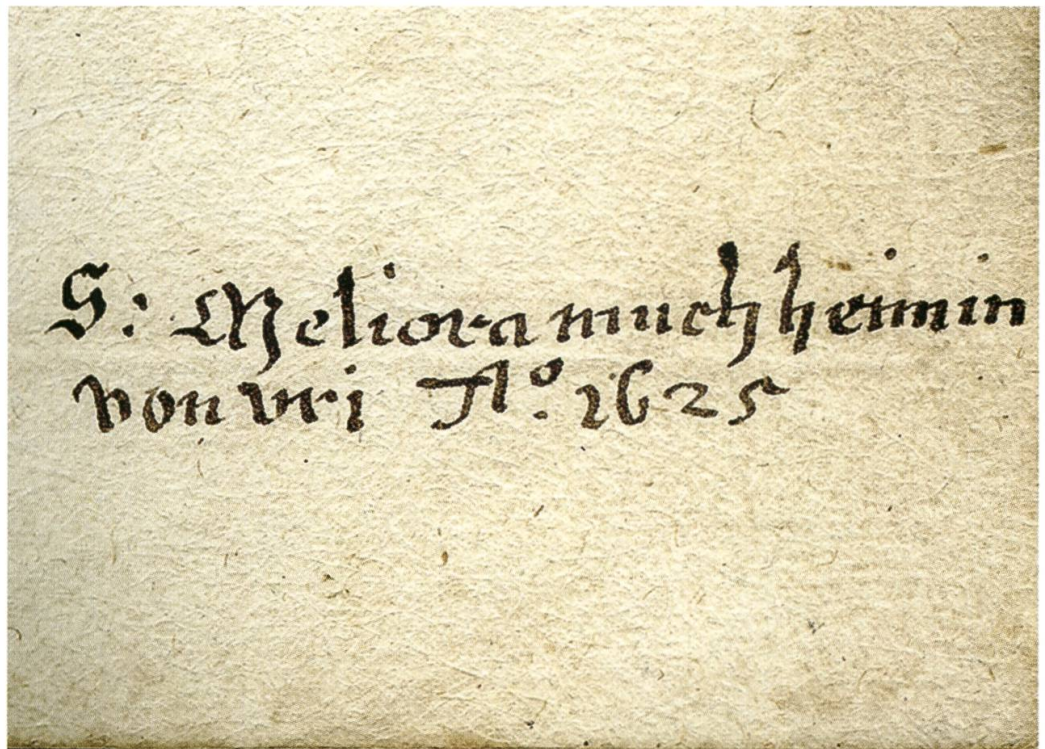 S: Meliora muchheimin
von vri Aº. 1625